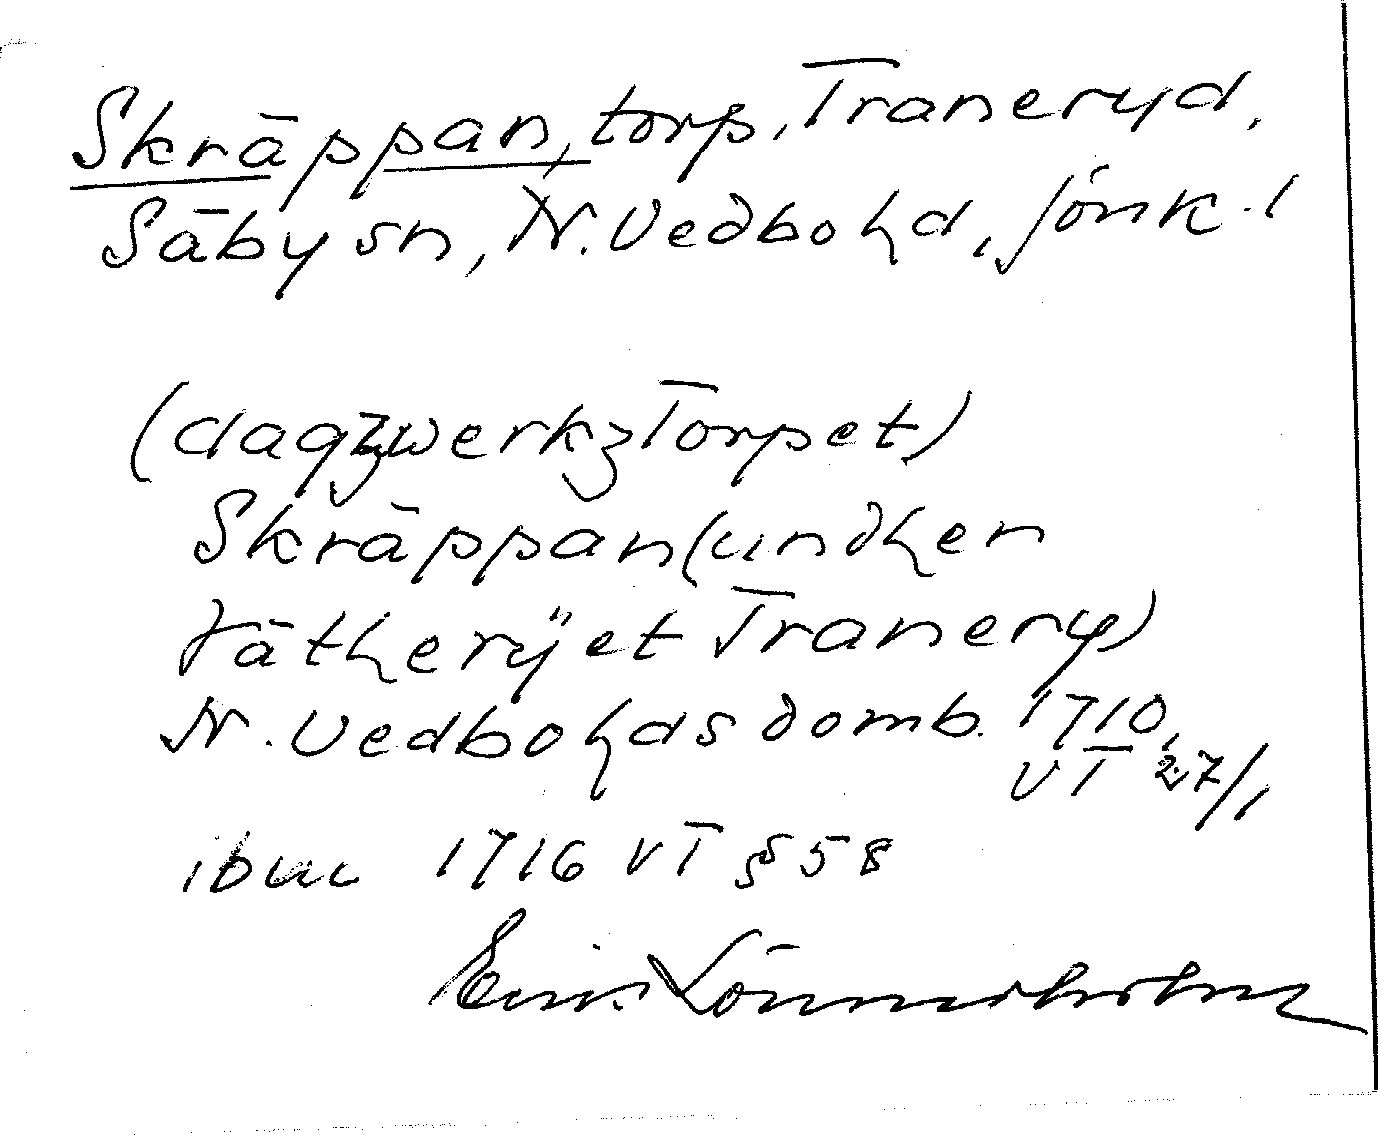 Skräppan, torp, Traneryd,
Säby sn, N. Vedbo hd, Jönk. l
(dagzwerkztorpet)
Skräppan (undher
Sätherÿet Tranery)
N. Vedbo hds domb. 1710,
VT 27/1
ibm 1716 VT § 58
Eric Lönnerholm